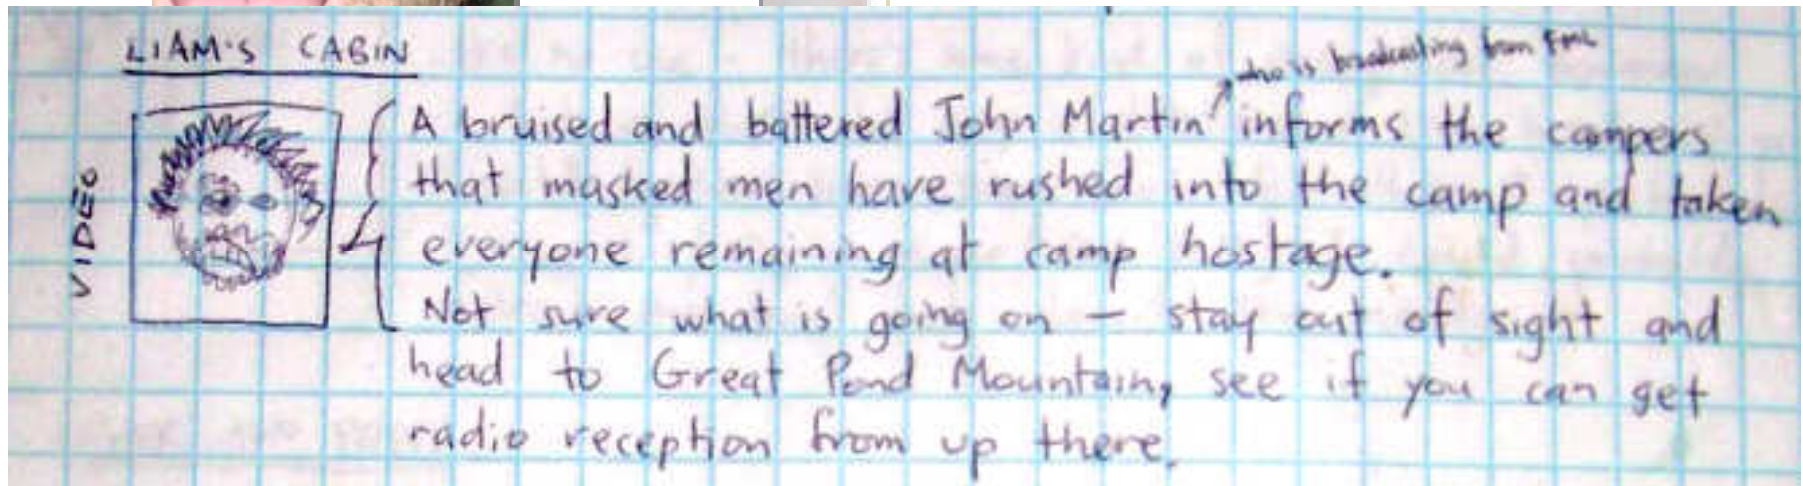 LIAM'S CABIN
who is broadcasting from FML
A bruised and battered John Martin informs the campers
VIDEO
that masked men have rushed into the camp and taken
everyone remaining at camp hostage.
Not sure what is going on – stay out of sight and
head to Great Pond Mountain, see if you can get
radio reception from up there.